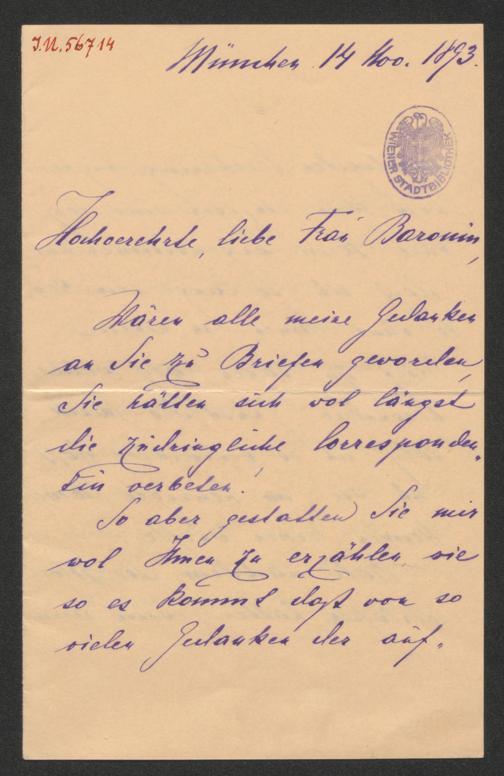 I.N. 56714
München 14 Nov. 1893.
WIENER STADTBIBLIOTHEK
Hochverehrte, liebe Frau Baronin,
Wären alle meine Gedanken
an Sie zu Briefen geworden,
Sie hätten sich wol längst
die zudringliche Corresponden-
tin verbeten!
So aber gestatten Sie mir
wol Ihnen zu erzählen wie
so es kommt daß von so
vielen Gedanken der auf-